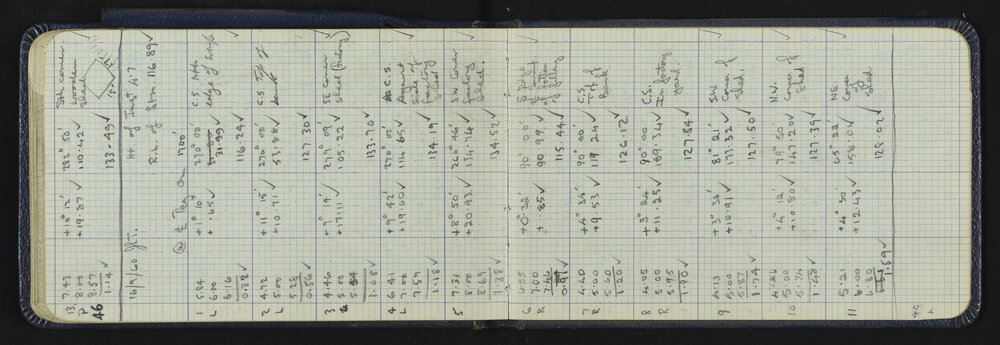 13. 7.43 +10° 12' 282° 50' Sth Corner
P 8.00 +19.87 ✓ 110.42 ✓ wooden
8.57 shed
46 1.14 ✓ 133.49 ✓
16/9/60 Ht. of Inst 4.7
R.L. of Stn. 116.89 ✓
1 5.84 +1° 10' 270° 00' C.S.
L 6.00 +.65 ✓ 31.99 ✓ edge of
6.16
0.32 ✓ 116.24 ✓
2 4.72 +11° 15' 270° 00' C.S. Top of
L 5.00 +10.71 ✓ 53.88 ✓ bank
5.28
0.56 ✓ 127.30 ✓
3 4.46 +9° 14' 279° 09' SE Corner
5.00 +17.11 ✓ 105.22 ✓ shed (factory)
5.54
1.08 ✓ 133.70 ✓
4 6.41 +9° 42' 270° 00' C.S.
L 7.00 +19.60 ✓ 114.65 ✓ Against
7.59 side of
1.18 ✓ 134.19 ✓ factory
shed
5 7.31 +8° 50' 260° 46' S.W. Corner
8.00 +20.93 ✓ 134.74 ✓ factory
8.69 shed.
1.38 ✓ 134.52 ✓
6 6.55 +0° 32' 90° 00'
R 7.00 +.85 ✓ 90.99 ✓
7.46
0.91 ✓ 115.44 ✓
7 4.40 +4° 34' 90° 00' C.S.
R 5.00 +9.53 ✓ 119.24 ✓ Top of
5.60 Bank
1.20 ✓ 126.12 ✓
8 4.05 +3° 24' 90° 00' C.S.
R 5.00 +11.25 ✓ 189.34 ✓ In factory
5.95 yard.
1.90 ✓ 127.84 ✓
9 4.13 +3° 36' 81° 21' S.W.
5.00 +10.91 ✓ 173.32 ✓ Corner of
5.87 Shed.
1.74 ✓ 127.50 ✓
10 4.26 +4° 12' 79° 50' N.W.
5.00 +10.80 ✓ 147.20 ✓ Corner of
5.74 Shed
1.48 ✓ 127.39 ✓
11 5.21 +4° 30' 65° 22' NE
6.00 +12.43 ✓ 158.04 ✓ Corner of
6.80 Shed.
1.59 ✓ 128.02 ✓